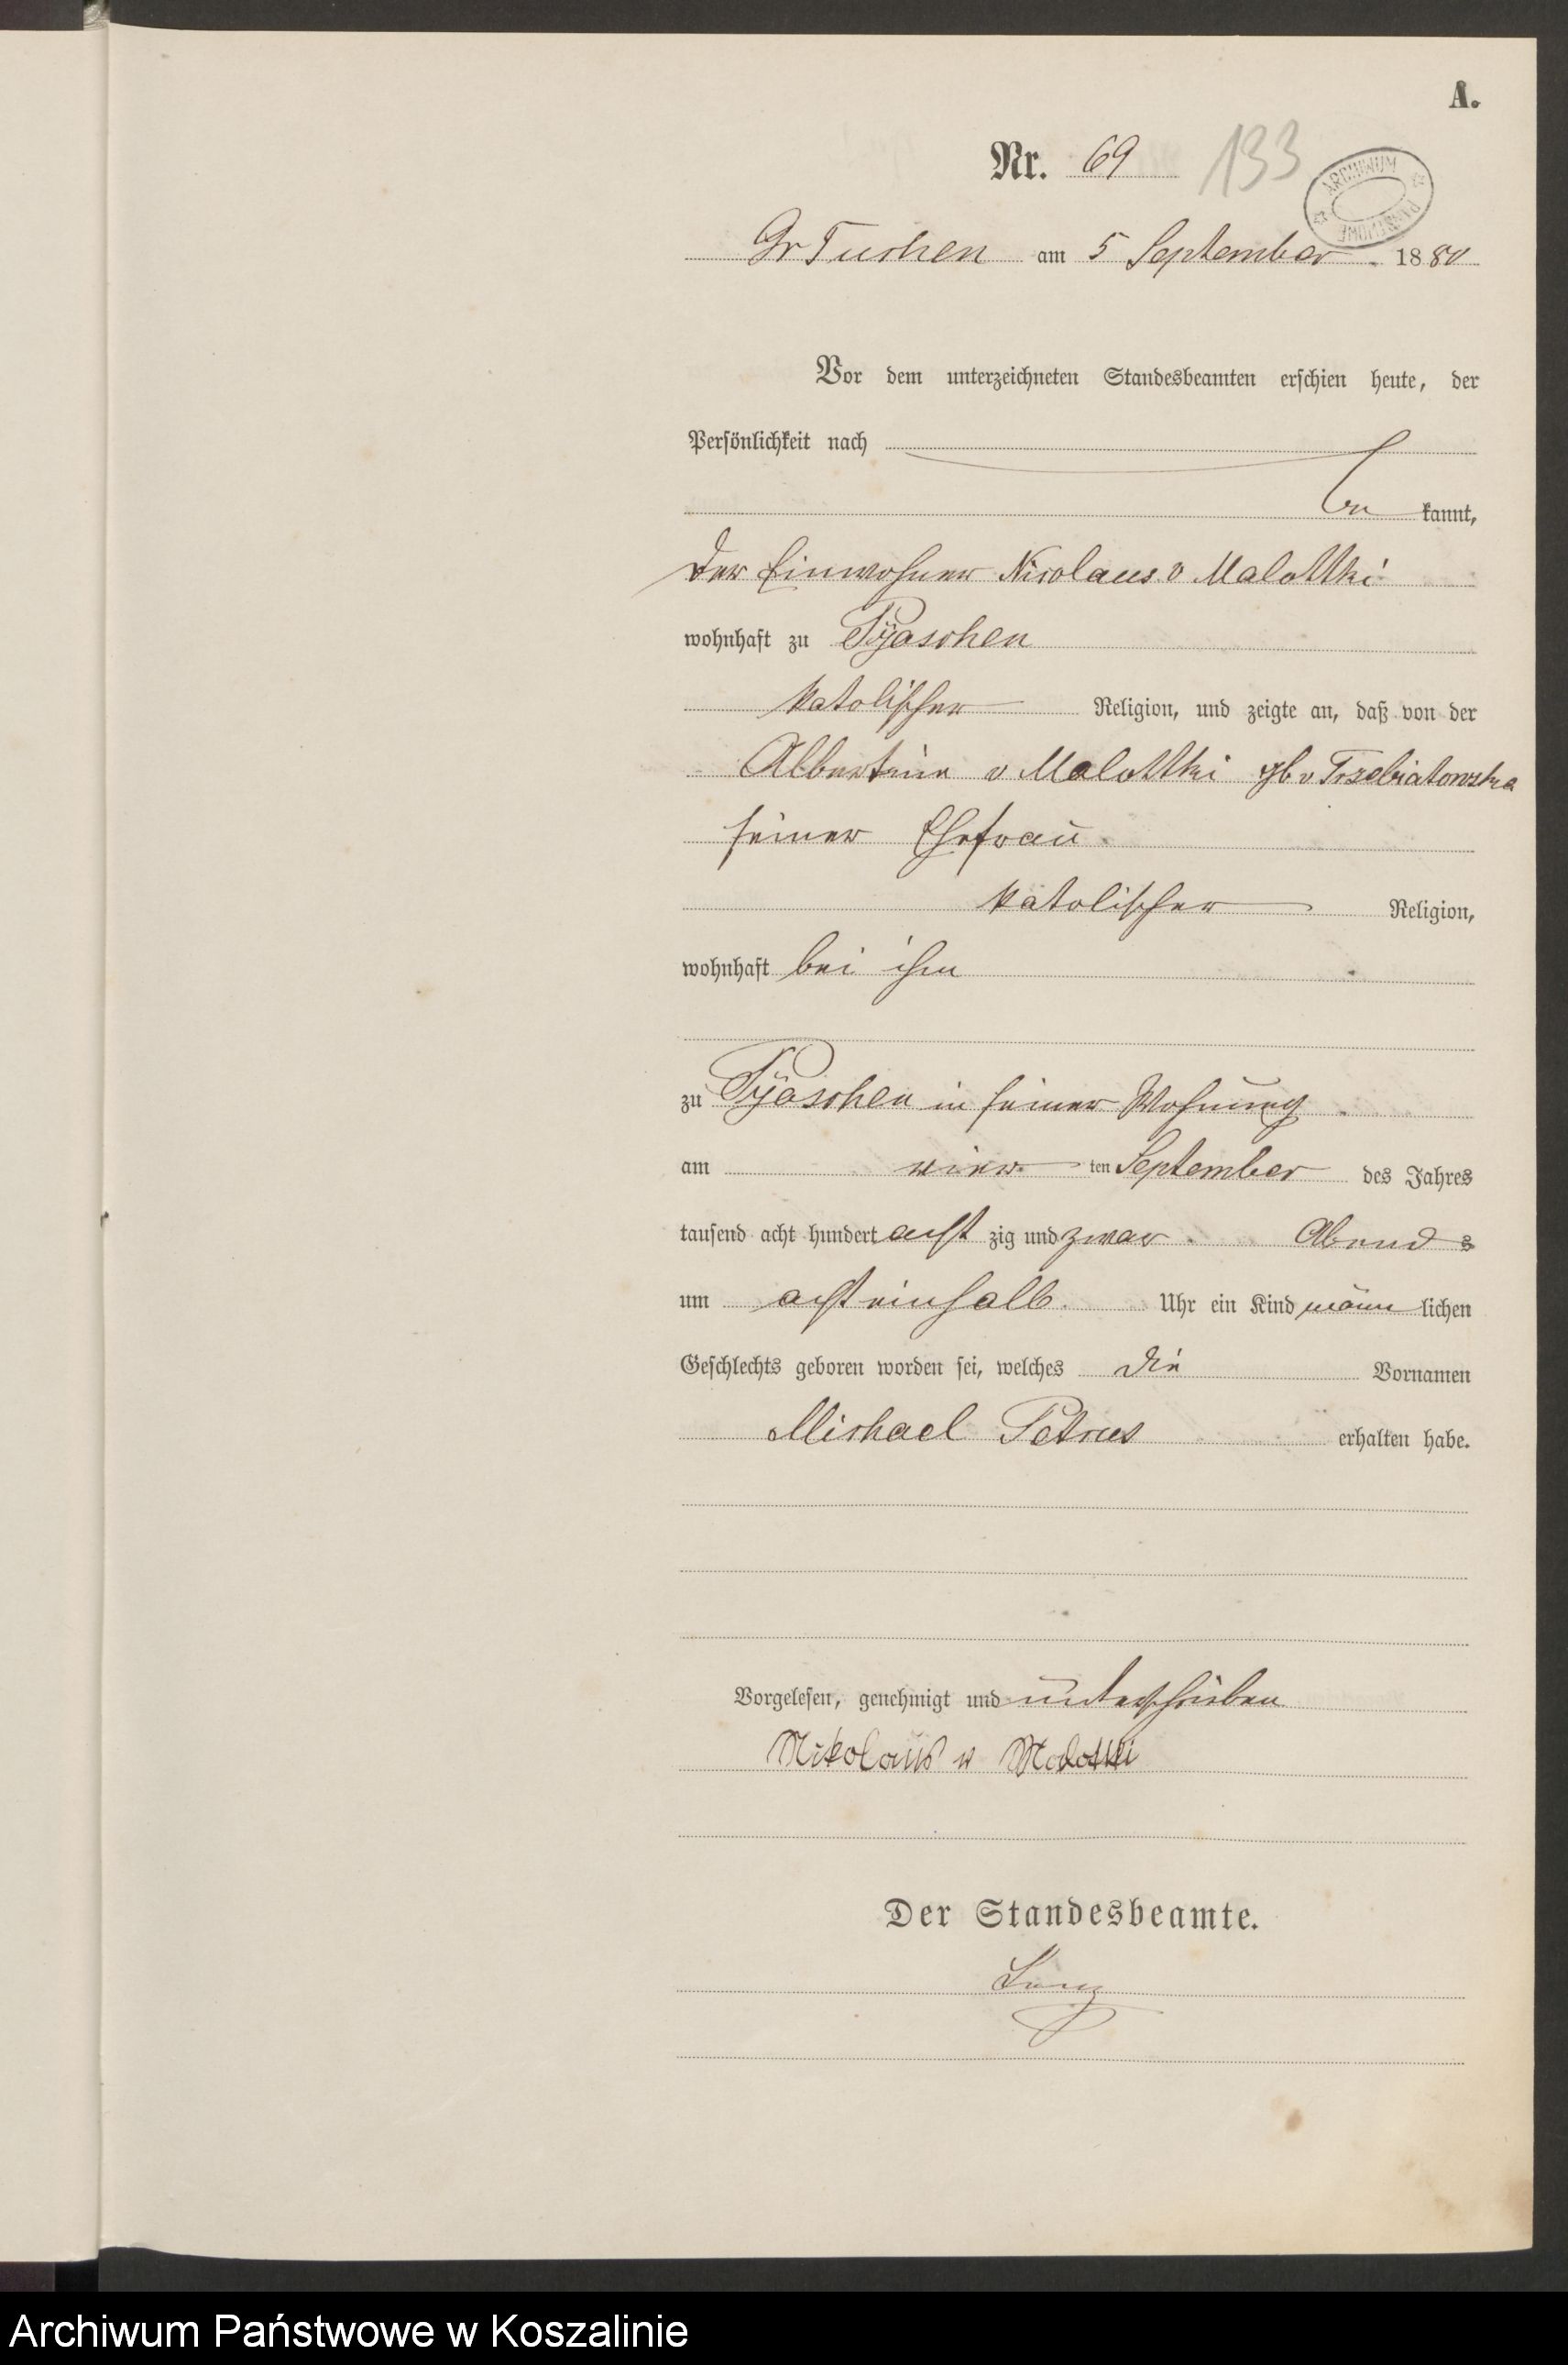 A.
Nr. 69 133
ARCHIWUM PAŃSTWOWE
Gr Tuchen am 5 September 1880
Vor dem unterzeichneten Standesbeamten erschien heute, der
Persönlichkeit nach
be kannt,
der Einwohner Nicolaus v Malottki
wohnhaft zu Pyaschen
katolischer Religion, und zeigte an, daß von der
Albertine v Malottki gb v Trzebiatowska
seiner Ehefrau
katolischer Religion,
wohnhaft bei ihm
zu Pyaschen in seiner Wohnung
am vier ten September des Jahres
tausend acht hundert acht zig und zwar Abends
um acht einhalb Uhr ein Kind männ lichen
Geschlechts geboren worden sei, welches die Vornamen
Michael Petrus erhalten habe.
Vorgelesen, genehmigt und unterschrieben
Nikolaus v Malottki
Der Standesbeamte.
Archiwum Państwowe w Koszalinie